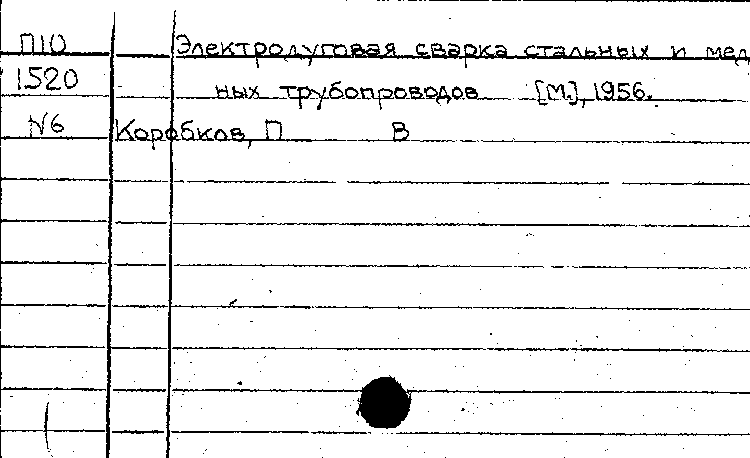 П10 Электродуговая сварка стальных и мед
1520 ных трубопроводов [М.], 1956.
N6 Коробков, П В